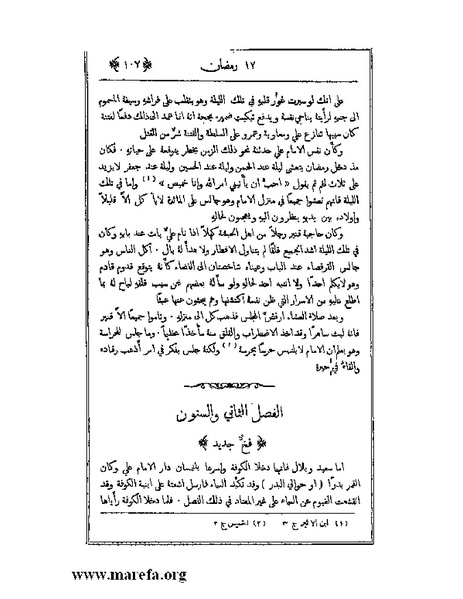 ﴿ ١٠٧ ﴾ ١٧ رمضان
على انك لو سبرت غور قلبه في تلك الليلة وهو يتقلب على فراشه وسيفه المسموم
الى جنبه لرأيته يناجي نفسه ويدفع تبكيت ضميره بحجة انه انما عمد الى ذلك دفعا لفتنة
كان سببها تنازع علي ومعاوية وعمرو على السلطة والفتنة شر من القتل
وكأن نفس الامام علي حدثته نحو ذلك الزمن بخطر يتوقعه على حياته . فكان
مذ دخل رمضان يتعشى ليلة عند الحسن وليلة عند الحسين وليلة عند جعفر لا يزيد
على ثلاث لقم ثم يقول « احب ان يأتيني امر الله وانا خميص » (١) واما في تلك
الليلة فانهم تعشوا جميعا في منزل الامام وهو جالس على المائدة لا يأكل الا قليلا
واولاده بين يديه ينظرون اليه ويعجبون لحاله
وكان حاجبه قنبر رجلا من اهل الحبشة كهلا اذا نام علي بات عند بابه وكان
في تلك الليلة اشد الجميع قلقا لم يتناول الافطار ولا هدأ له بال . أكل الناس وهو
جالس القرفصاء عند الباب وعيناه شاخصتان الى الفضاء كأنه يتوقع قدوم قادم
وهو لا يكلم احدا ولا انتبه احد لحاله ولو سأله بعضهم عن سبب قلقه لباح له بما
اطلع عليه من الاسرار التي ظن نفسه اكتشفها وهم يبحثون عنها عبثا
وبعد صلاة العشاء ارفض المجلس فذهب كل الى منزله . وناموا جميعا الا قنبر
فانه لبث ساهرا وقد اخذ الاضطراب والقلق منه مأخذا عظيما . وما جلس للحراسة
وهو يعلم ان الامام لا يلتمس حرسا يحرسه (٢) ولكنه جلس يفكر في امر أذهب رقاده
والقاه في حيرة
الفصل الثاني والستون
﴿ فخ جديد ﴾
اما سعيد وبلال فانهما دخلا الكوفة واسرعا يلتمسان دار الامام علي وكان
القمر بدرا ( او حوالي البدر ) وقد تكبد السماء فارسل اشعته على ابنية الكوفة وقد
انقشعت الغيوم عن السماء على غير المعتاد في ذلك الفصل . فلما دخلا الكوفة رأياها
(١) ابن الاثير ج ٣ (٢) الخميس ج ٢
www.marefa.org